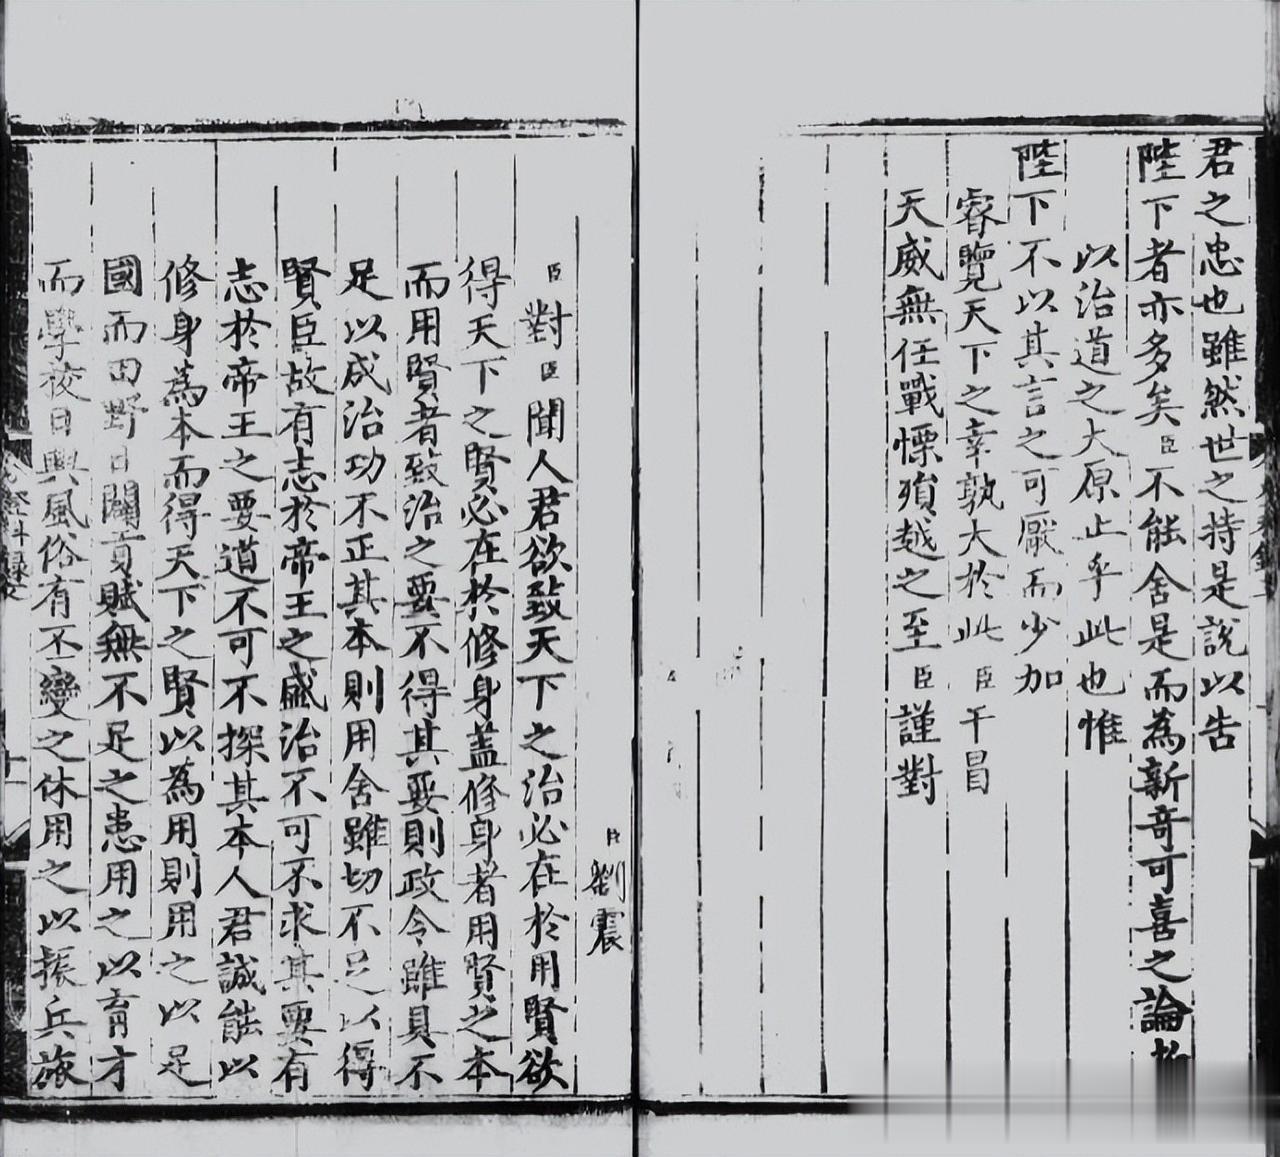 君之忠也雖然世之持是說以告
陛下者亦多矣臣不能舍是而為新奇可喜之論
以治道之大原止乎此也惟
陛下不以其言之可厭而少加
睿覽天下之幸孰大於此臣干冒
天威無任戰慄殞越之至臣謹對
臣劉震
臣對臣聞人君欲致天下之治必在於用賢欲
得天下之賢必在於修身蓋修身者用賢之本
而用賢者致治之要不得其要則政令雖具不
足以成治功不正其本則用舍雖切不足以得
賢臣故有志於帝王之盛治不可不求其要有
志於帝王之要道不可不探其本人君誠能以
修身為本而得天下之賢以為用則用之以足
國而田野日闢貢賦無不足之患用之以育才
而學校日興風俗有丕變之休用之以振兵旅